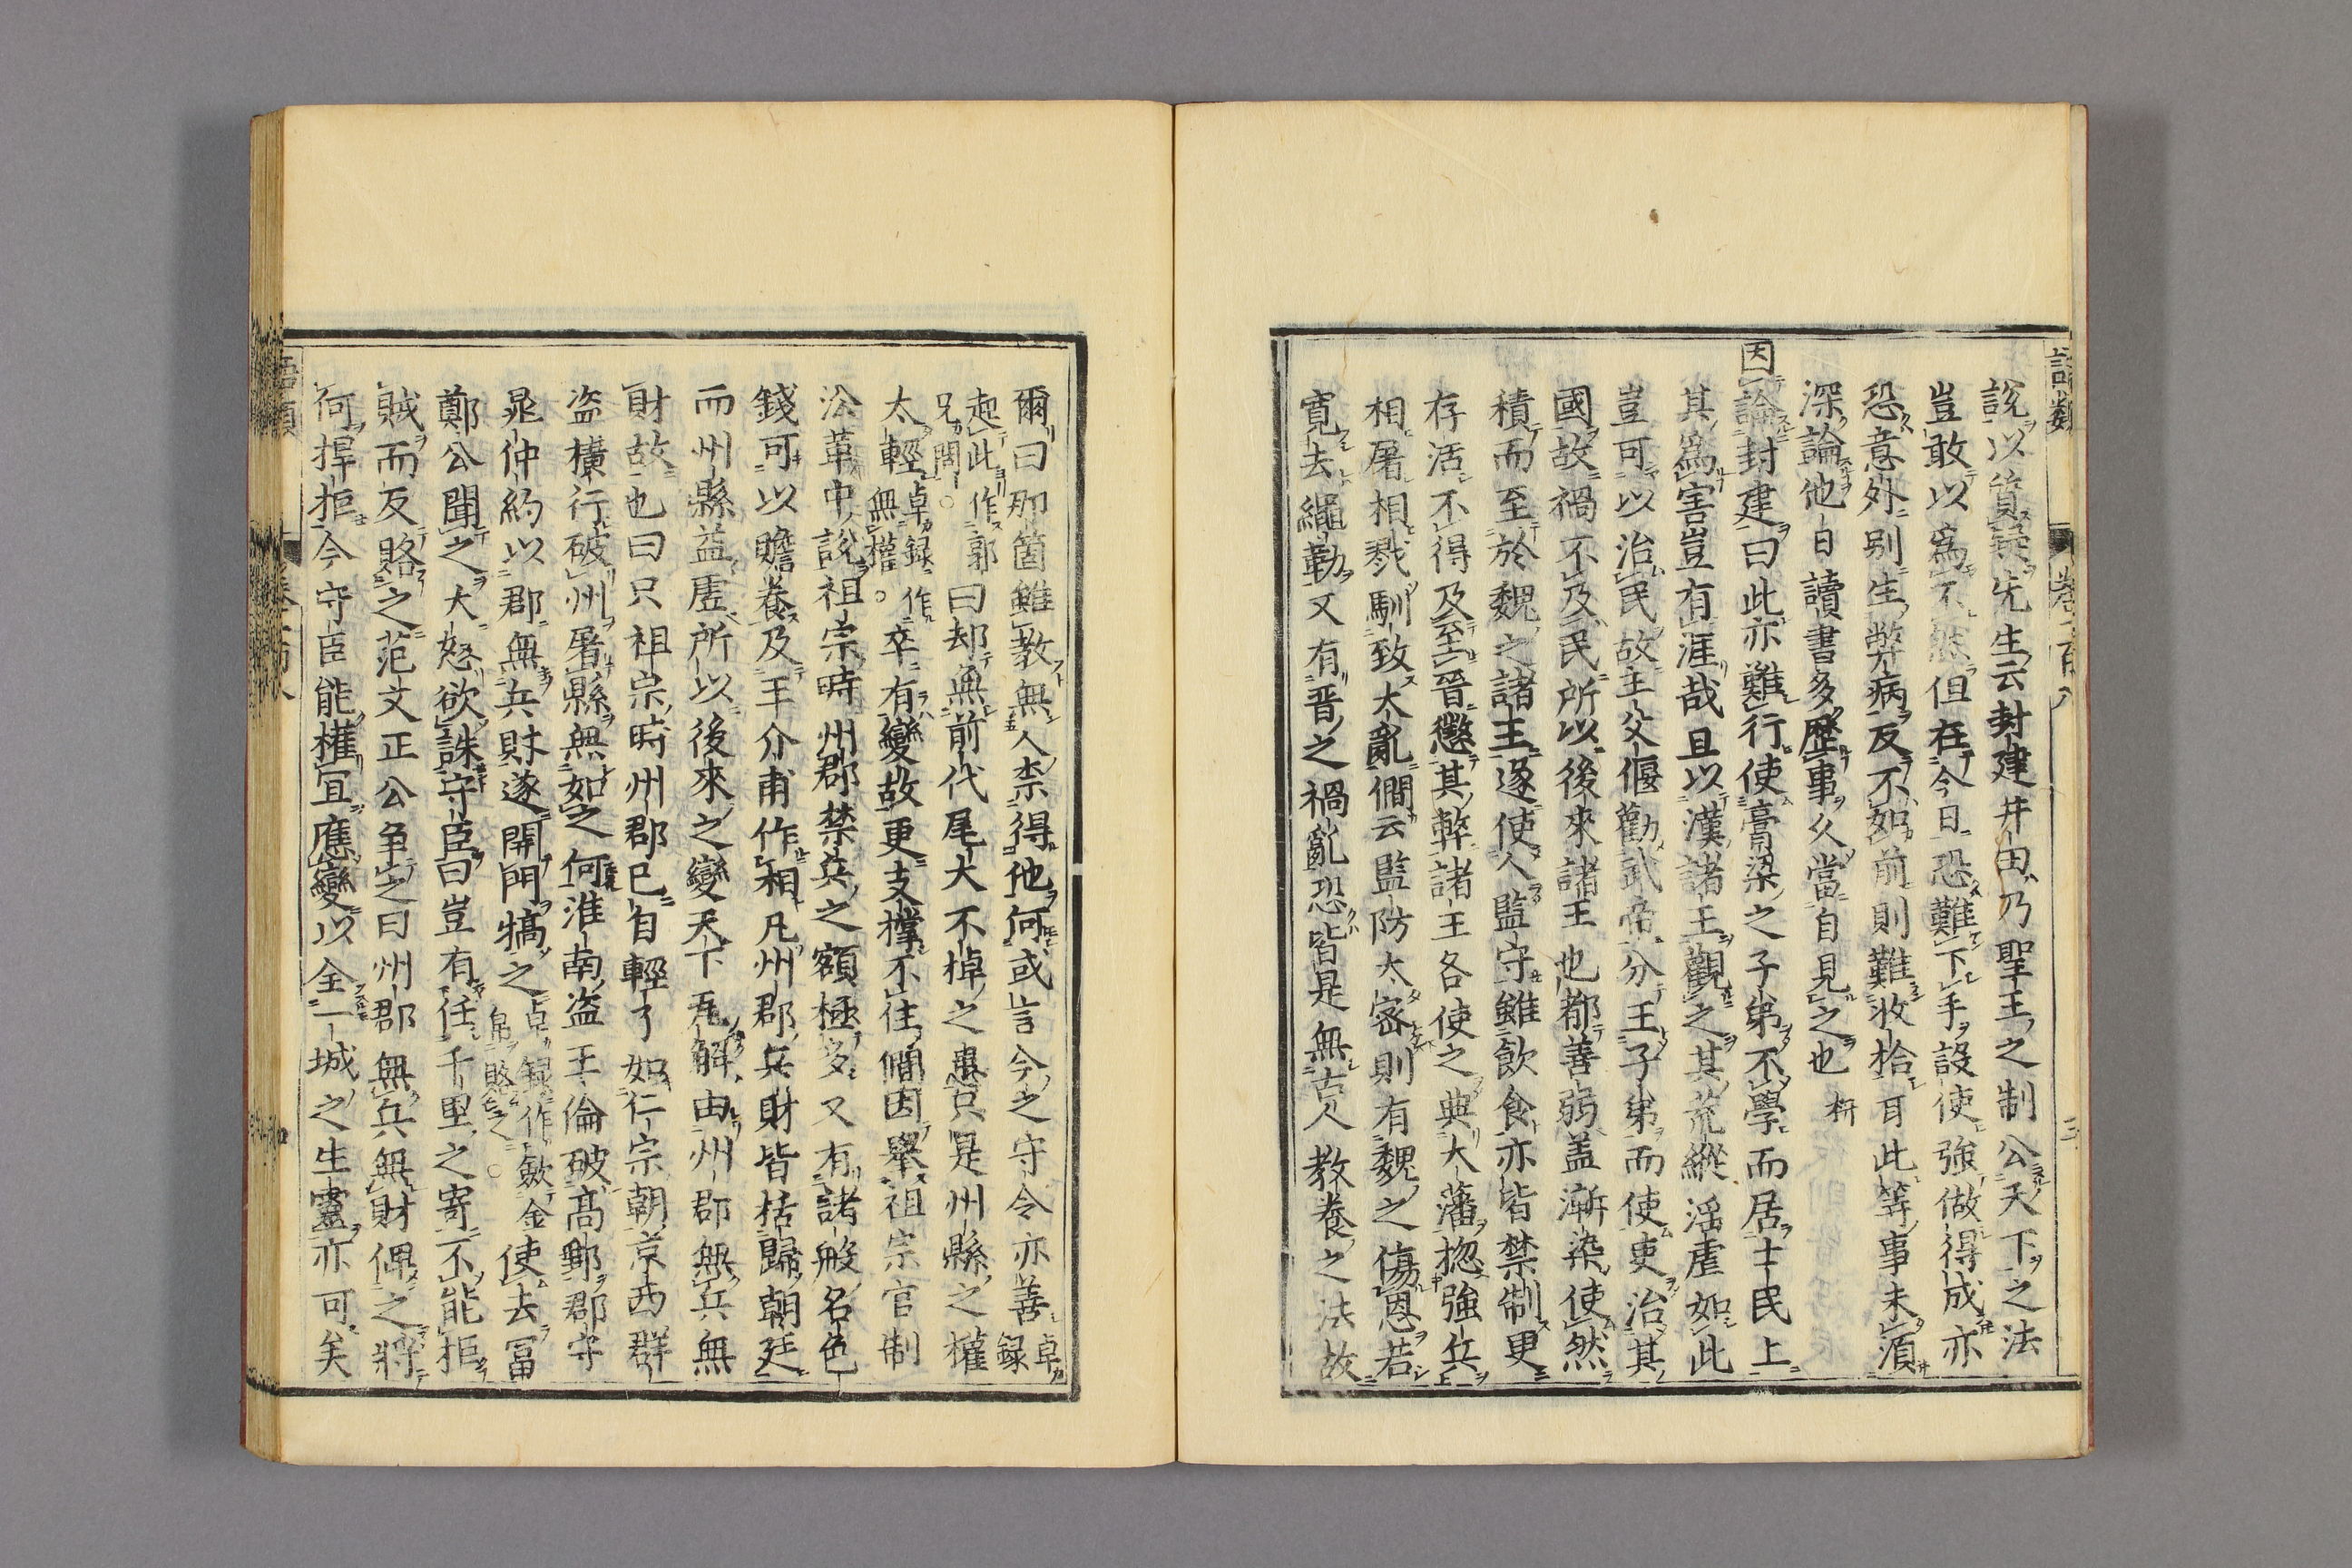 語類 卷一百八 三
說以質疑先生云封建井田乃聖王之制公天下之法
豈敢以爲不然但在今日恐難下手設使強做得成亦
恐意外別生弊病反不如前則難收拾耳此等事未須
深論他日讀書多歷事久當自見之也 枅
因論封建曰此亦難行使膏梁之子弟不學而居士民上
其爲害豈有涯哉且以漢諸王觀之其荒縱淫虐如此
豈可以治民故主父偃勸武帝分王子弟而使吏治其
國故禍不及民所以後來諸王也都善弱盖漸染使然
積而至於魏之諸王遂使人監守雖飲食亦皆禁制更
存活不得及至晉懲其弊諸王各使之典大藩揔強兵
相屠相戮馴致大亂僩云監防太密則有魏之傷恩若
寬去繩勒又有晉之禍亂恐皆是無古人教養之法故
爾曰那箇雖教無人柰得他何或言今之守令亦善 卓録
起此作郭兄問○曰却無前代尾大不掉之患只是州縣之權
太輕 卓録作無權○卒有變故更支撐不住僩因舉祖宗官制
沿革中說祖宗時州郡禁兵之額極多又有諸般名色
錢可以贍養及王介甫作相凡州郡兵財皆括歸朝廷
而州縣益虛所以後來之變天下瓦解由州郡無兵無
財故也曰只祖宗時州郡已自輕了如仁宗朝京西群
盗橫行破州屠縣無如之何淮南盗王倫破高郵郡守
晁仲約以郡無兵財遂開門犒之 卓録作斂金帛賂之○使去富
鄭公聞之大怒欲誅守臣曰豈有任千里之寄不能拒
賊而反賂之范文正公争之曰州郡無兵無財俾之將
何捍拒今守臣能權宜應變以全一城之生靈亦可矣
語類